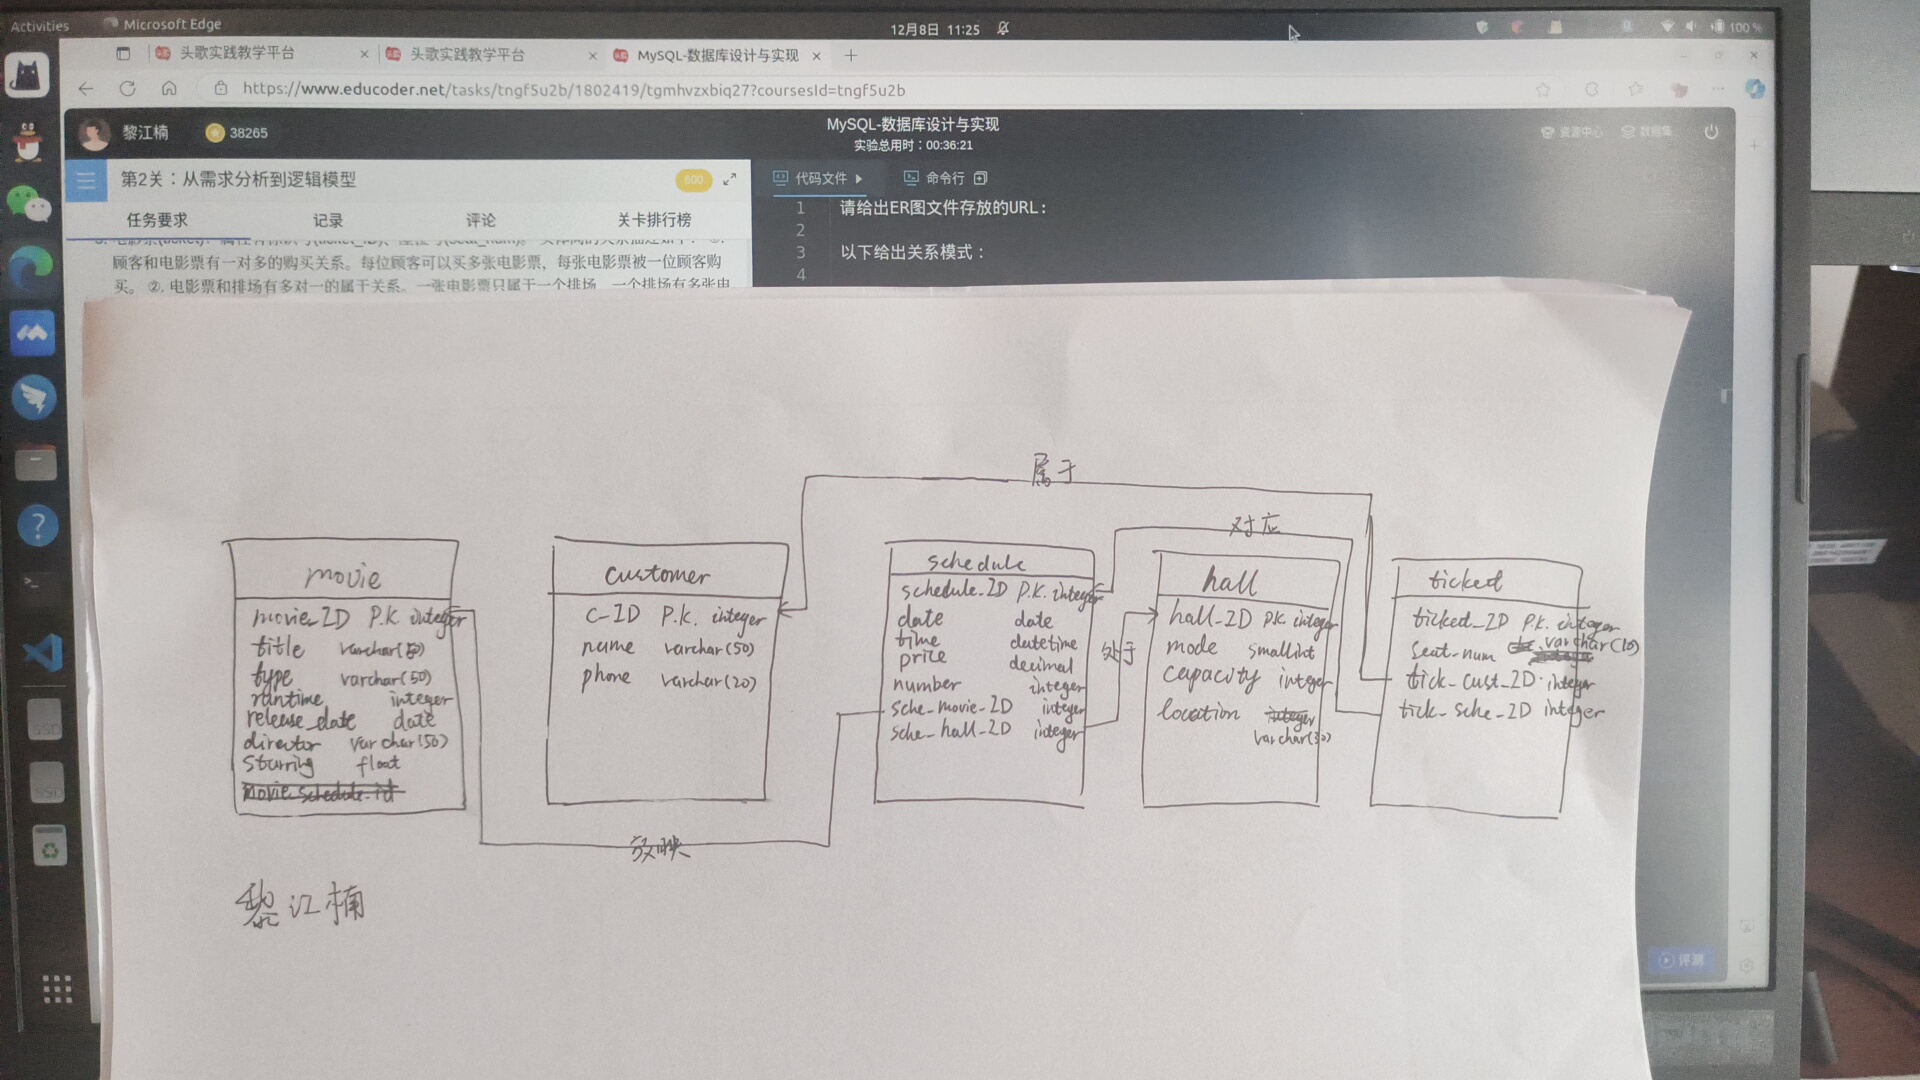 Activities
Microsoft Edge
12月8日 11:25
100 %
头歌实践教学平台
头歌实践教学平台
MySQL-数据库设计与实现
https://www.educoder.net/tasks/tngf5u2b/1802419/tgmhvzxbiq27?coursesId=tngf5u2b
黎江楠
38265
MySQL-数据库设计与实现
实验总用时：00:36:21
资源中心
数据集
第2关：从需求分析到逻辑模型
600
代码文件
命令行
任务要求
记录
评论
关卡排行榜
1 请给出ER图文件存放的URL:
2
3 以下给出关系模式：
4
顾客和电影票有一对多的购买关系。每位顾客可以买多张电影票，每张电影票被一位顾客购
买。 ②. 电影票和排场有多对一的属于关系。一张电影票只属于一个排场，一个排场有多张电
属于
对应
处于
放映
movie
movie_ID P.K integer
title varchar(50)
type varchar(50)
rantime integer
release_date date
director varchar(50)
starring float
movie_schedule_id
customer
C-ID P.K. integer
name varchar(50)
phone varchar(20)
schedule
schedule_ID P.K. integer
date date
time datetime
price decimal
number integer
sche_movie_ID integer
sche_hall_ID integer
hall
hall_ID P.K. integer
mode smallint
capacity integer
location integer
varchar(30)
ticked
ticked_ID P.K. integer
seat-num varchar(10)
tick_cust_ID integer
tick_sche_ID integer
黎江楠
评测
SSD
SSD